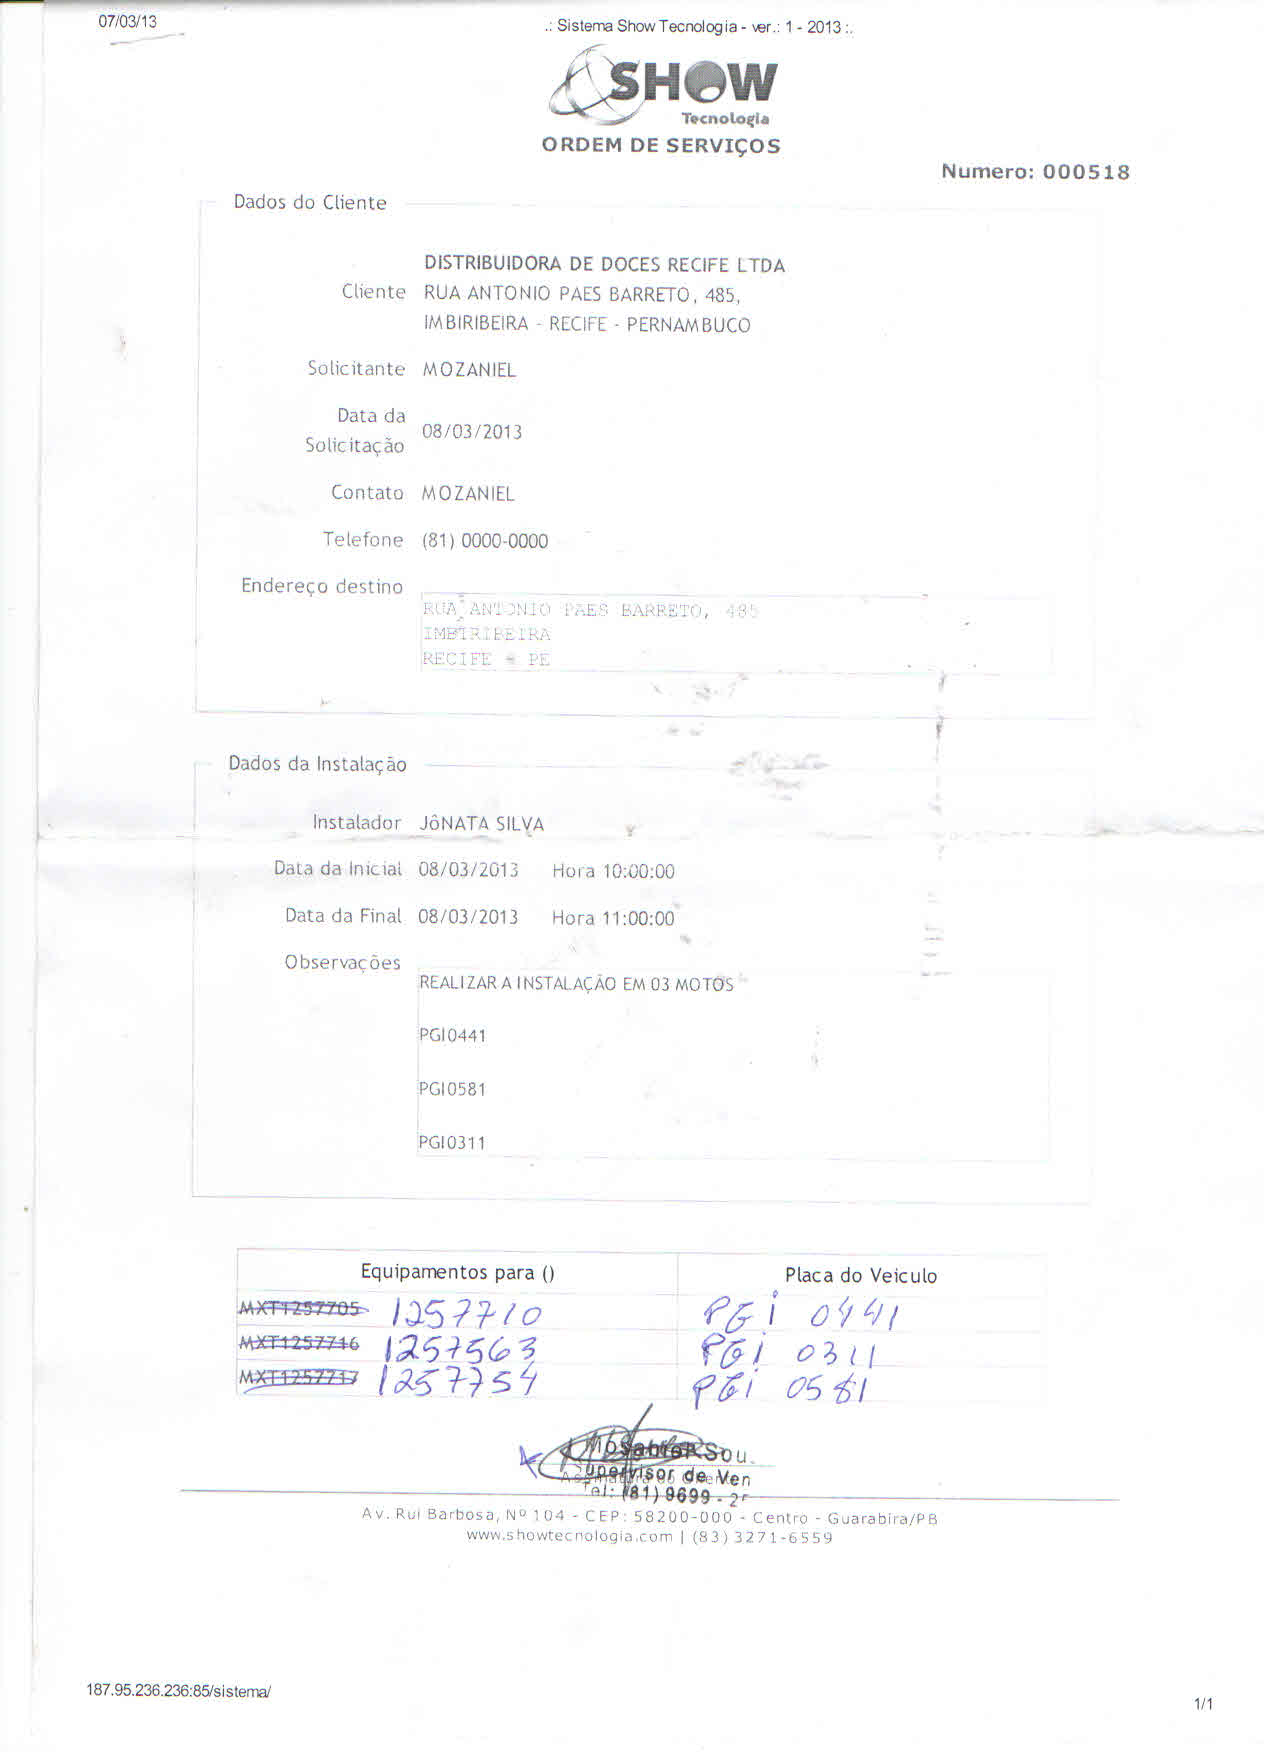 07/03/13
.: Sistema Show Tecnologia - ver.: 1 - 2013 :.
SHOW
Tecnologia
ORDEM DE SERVIÇOS
Numero: 000518
Dados do Cliente
DISTRIBUIDORA DE DOCES RECIFE LTDA
Cliente RUA ANTONIO PAES BARRETO, 485,
IMBIRIBEIRA - RECIFE - PERNAMBUCO
Solicitante MOZANIEL
Data da
Solicitação 08/03/2013
Contato MOZANIEL
Telefone (81) 0000-0000
Endereço destino
RUA ANTONIO PAES BARRETO, 485
IMBIRIBEIRA
RECIFE - PE
Dados da Instalação
Instalador JÔNATA SILVA
Data da Inicial 08/03/2013 Hora 10:00:00
Data da Final 08/03/2013 Hora 11:00:00
Observações
REALIZAR A INSTALAÇÃO EM 03 MOTOS
PGI0441
PGI0581
PGI0311
Equipamentos para () Placa do Veiculo
MXT1257705 1257710 PGi 0441
MXT1257716 1257563 PGi 0311
MXT1257717 1257754 PGi 0581
Sou
Supervisor de Ven
Tel: (81) 9699 - 2
Av. Rui Barbosa, Nº 104 - CEP: 58200-000 - Centro - Guarabira/PB
www.showtecnologia.com | (83) 3271-6559
187.95.236.236:85/sistema/
1/1